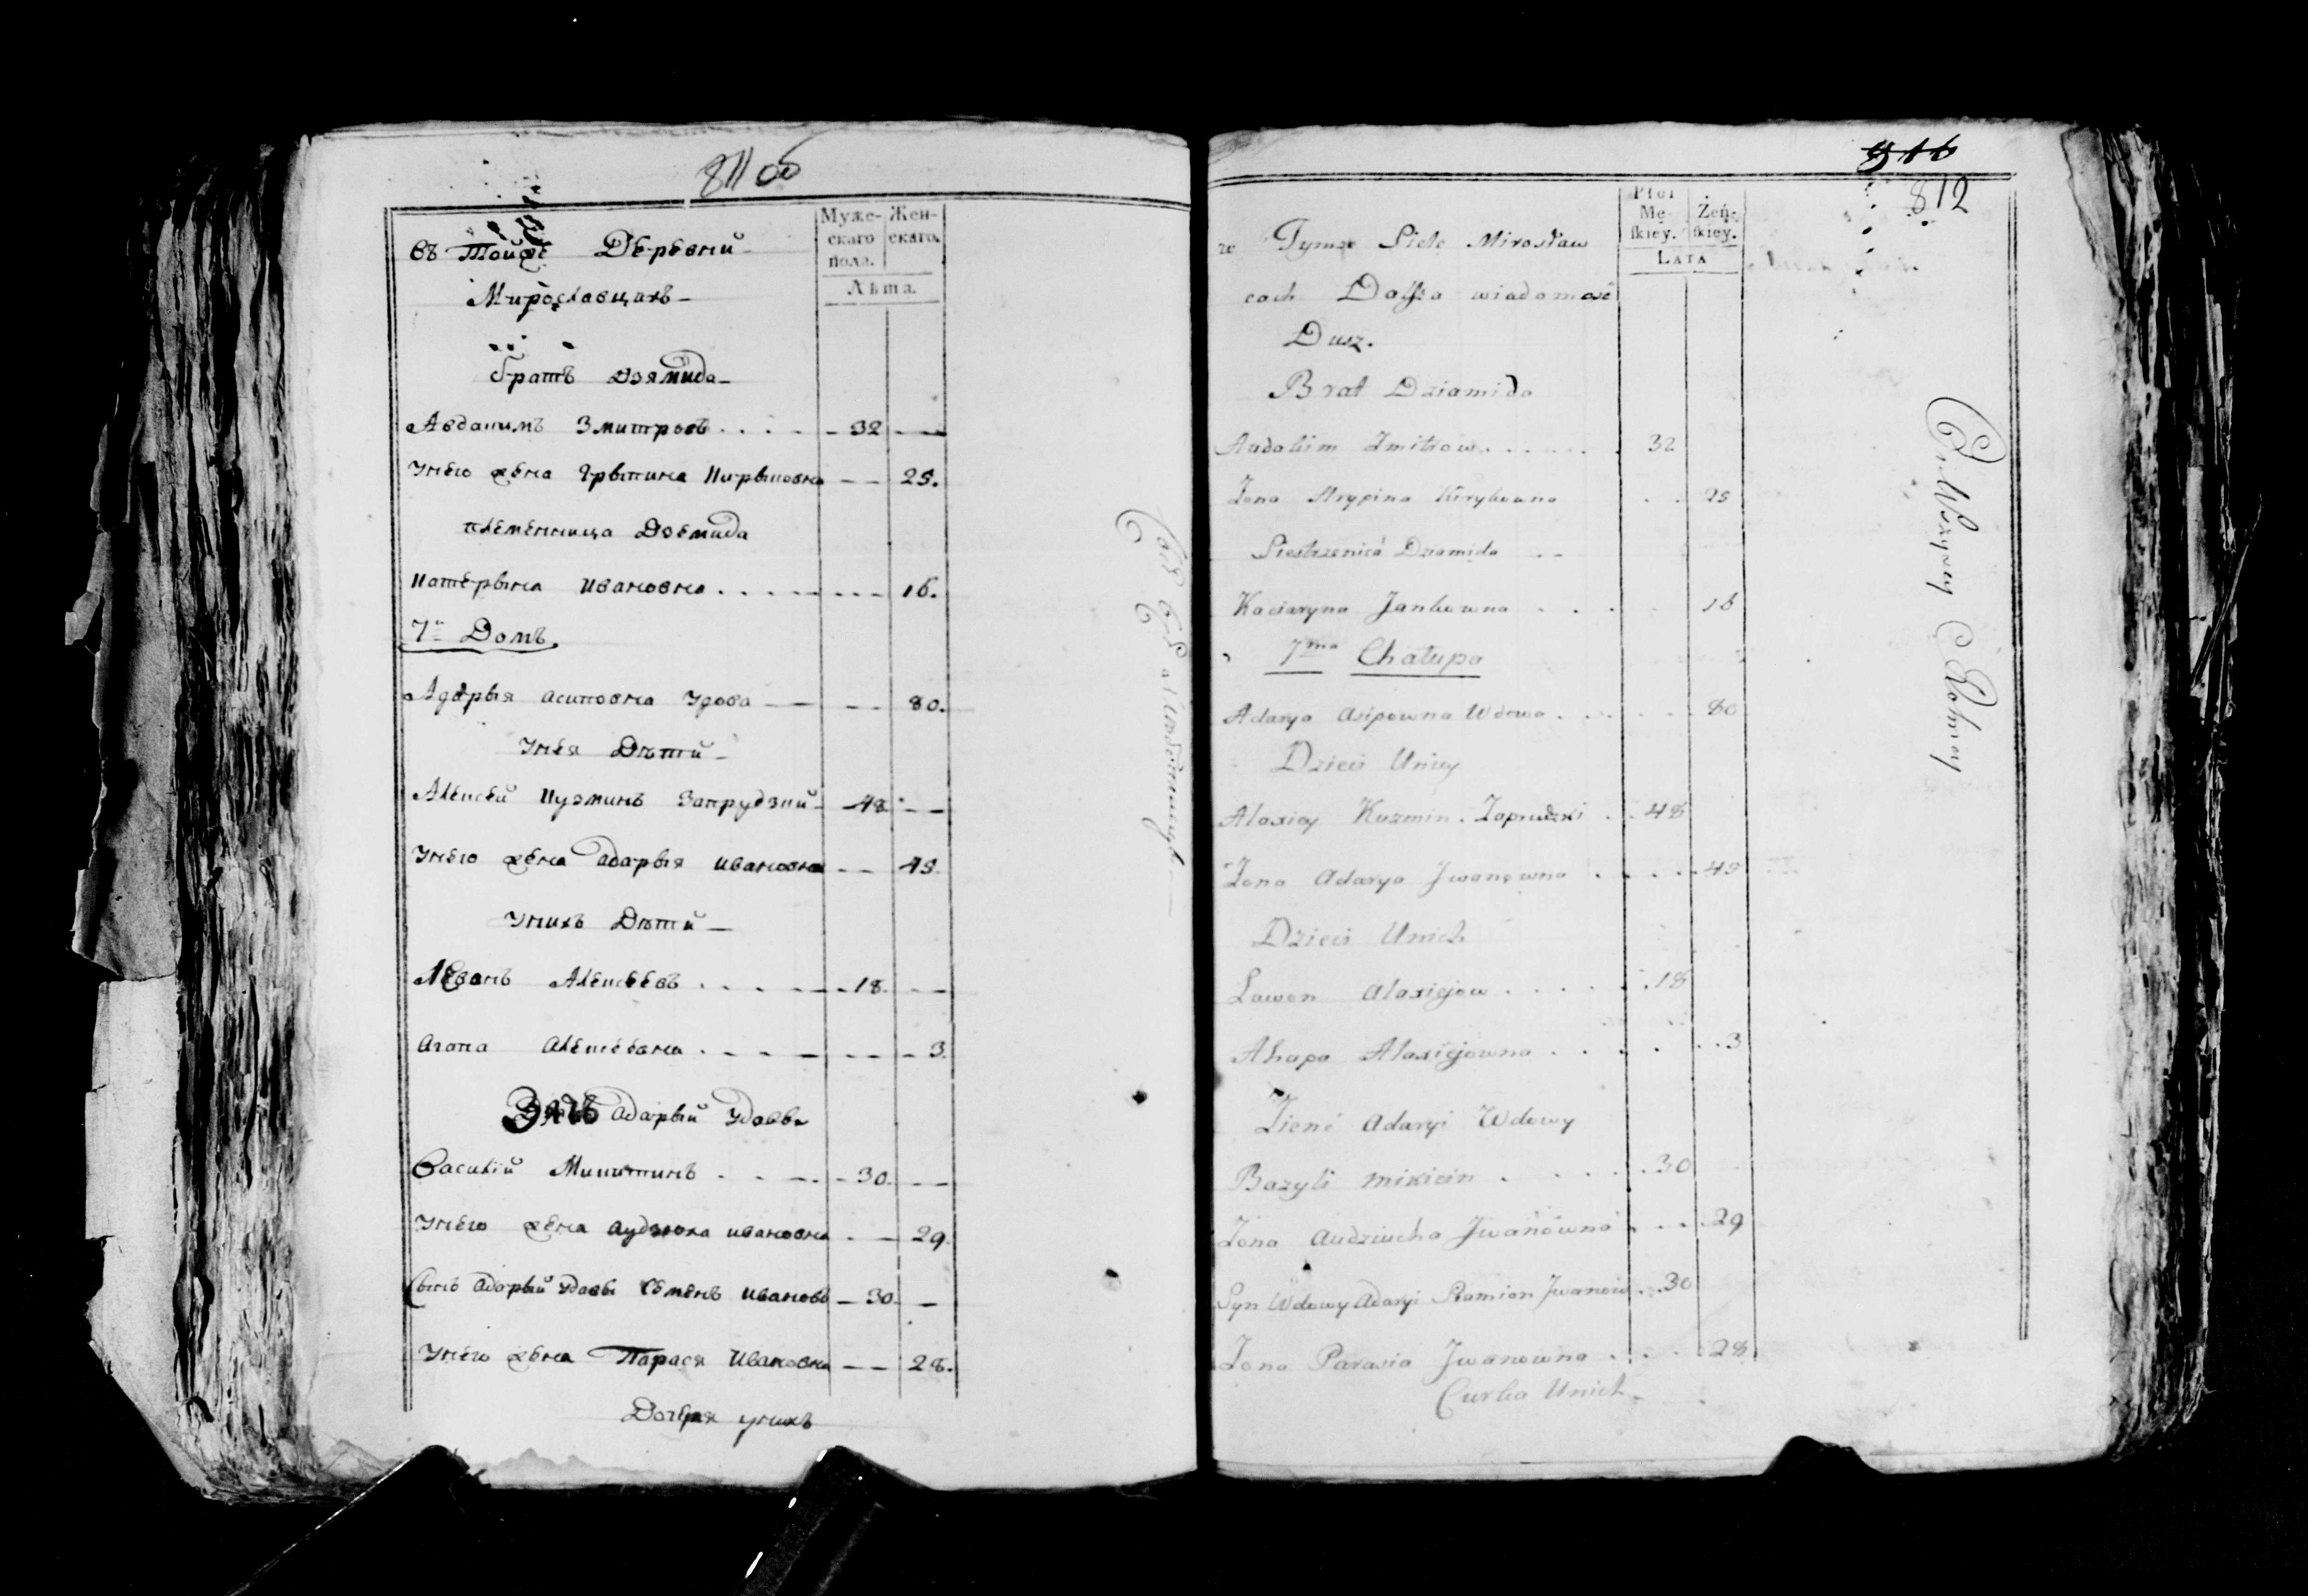 811 об
Муже-
скаго
пола.
Жен-
скаго.
Лѣта.
Въ Тойже Деревни
Мирославцахъ
Братъ Дзямида
Авдакимъ Змитровъ . . . . 32
Унего жена Грыпина Кирыковна 25.
племенница Дземида
Катерына Ивановна . . . . 16.
7й Домъ.
Адарья Асиповна Удова 80.
Унея Дѣти
Алексей Кузминъ Запрудзкий 48
Унего жена Адарья Ивановна 45
Унихъ Дѣти
Левонъ Алексеевъ . . . . 18
Агапа Алексеевна . . . . 3
Зять Адарьи Удовы
Василий Микитинъ . . . . 30
Унего жена Аудзюха Ивановна 29
Сынъ Адарьи Удовы Семенъ Ивановъ 30
Унего жена Парася Ивановна 28.
Дочеря унихъ
812
Płci
Mę-
skiey.
Żeń-
skiey.
LATA
w Tymże Siele Mirosław
cach Dalsza wiadomość
Dusz.
Brat Dziamida
Audakim Zmitrow . . . . . 32
Zona Hrypina Kirykowna . . 25
Siestrzenica Dziamida
Kaciaryna Jankowna . . . 16
7ma Chałupa
Adarya Asipowna Wdowa . . . 80
Dzieci Uniey
Alaxiey Kuzmin Zaprudzki . . 48
Zona Adarya Jwanowna . . . . 45
Dzieci Unich
Lawon Alaxiejow . . . . . 18
Ahapa Alaxiejowna . . . . 3
Zienć Adaryi Wdowy
Bazyli Mikicin . . . . 30
Zona Audziucha Jwanowna . . . 29
Syn Wdowy Adaryi Siamion Jwanow . . 30
Zona Parasia Jwanowna . . . 28
Curka Unich